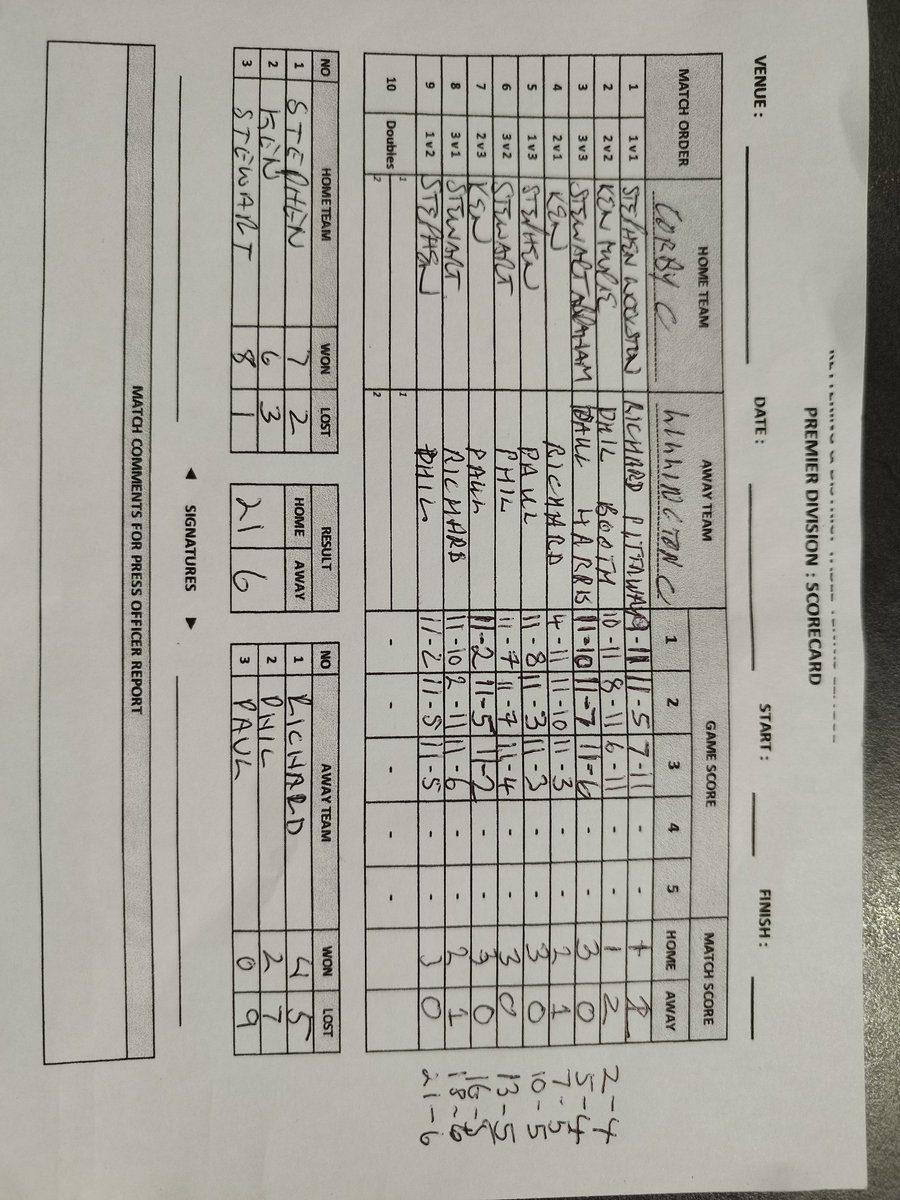 PREMIER DIVISION : SCORECARD
VENUE : DATE : START : FINISH :
MATCH ORDER HOME TEAM AWAY TEAM GAME SCORE MATCH SCORE
CORBY C 1 2 3 4 5 HOME AWAY
1 1 v 1 STEPHEN RICHARD PITTAWAY 9-11 11-5 7-11 - - 1
2 2 v 2 KEN PHIL BOOTH 10-11 8-11 6-11 - - 1 2
3 3 v 3 STEWART PAUL HARRIS 11-10 11-7 11-6 - - 3 0
4 2 v 1 KEN RICHARD 4-11 11-10 11-3 - - 2 1
5 1 v 3 STEPHEN PAUL 11-8 11-3 11-3 - - 3 0
6 3 v 2 STEWART PHIL 11-7 11-7 11-4 - - 3 0
7 2 v 3 KEN PAUL 11-2 11-5 11-2 - - 3 0
8 3 v 1 STEWART RICHARD 11-10 2-11 11-6 - - 2 1
9 1 v 2 STEPHEN PHIL 11-2 11-5 11-5 - - 3 0
10 Doubles 1 1 - - - - -
2 2
2-4
5-4
7-5
10-5
13-5
16-5
18-6
21-6
NO HOME TEAM WON LOST RESULT NO AWAY TEAM WON LOST
1 STEPHEN 7 2 HOME AWAY 1 RICHARD 4 5
2 KEN 6 3 21 6 2 PHIL 2 7
3 STEWART 8 1 3 PAUL 0 9
◄ SIGNATURES ►
MATCH COMMENTS FOR PRESS OFFICER REPORT